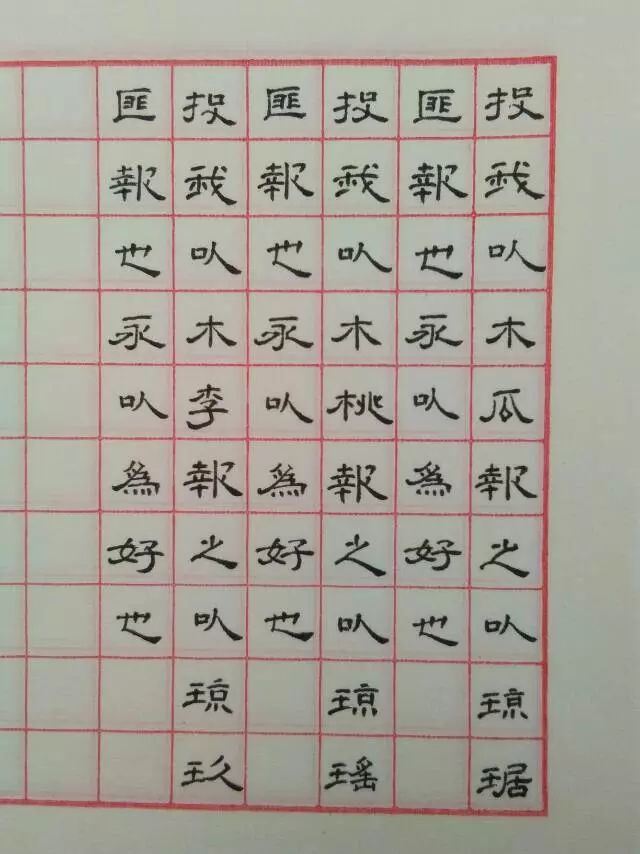 投我以木瓜報之以琼琚
匪報也永以為好也
投我以木桃報之以琼瑤
匪報也永以為好也
投我以木李報之以琼玖
匪報也永以為好也